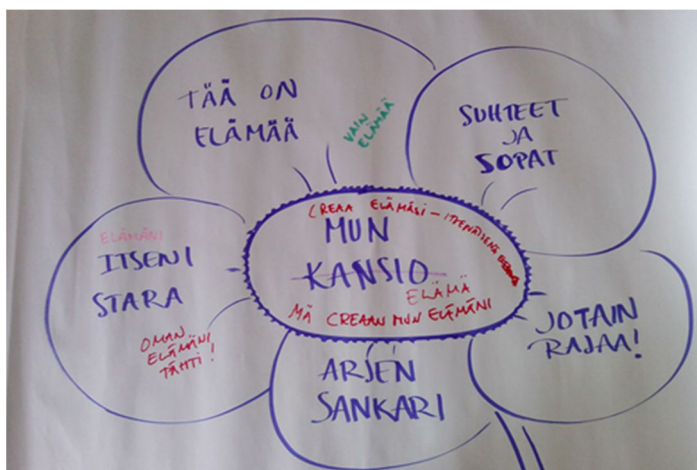 TÄÄ ON
ELÄMÄÄ
VAIN
ELÄMÄÄ
SUHTEET
JA
SOPAT
ELÄMÄNI
ITSENI
STARA
OMAN
ELÄMÄNI
TÄHTI!
CREAA ELÄMÄSI - ITSENÄISENÄ
MUN
KANSIO
ELÄMÄ
MÄ CREAAN MUN ELÄMÄNI
JOTAIN
RAJAA!
ARJEN
SANKARI